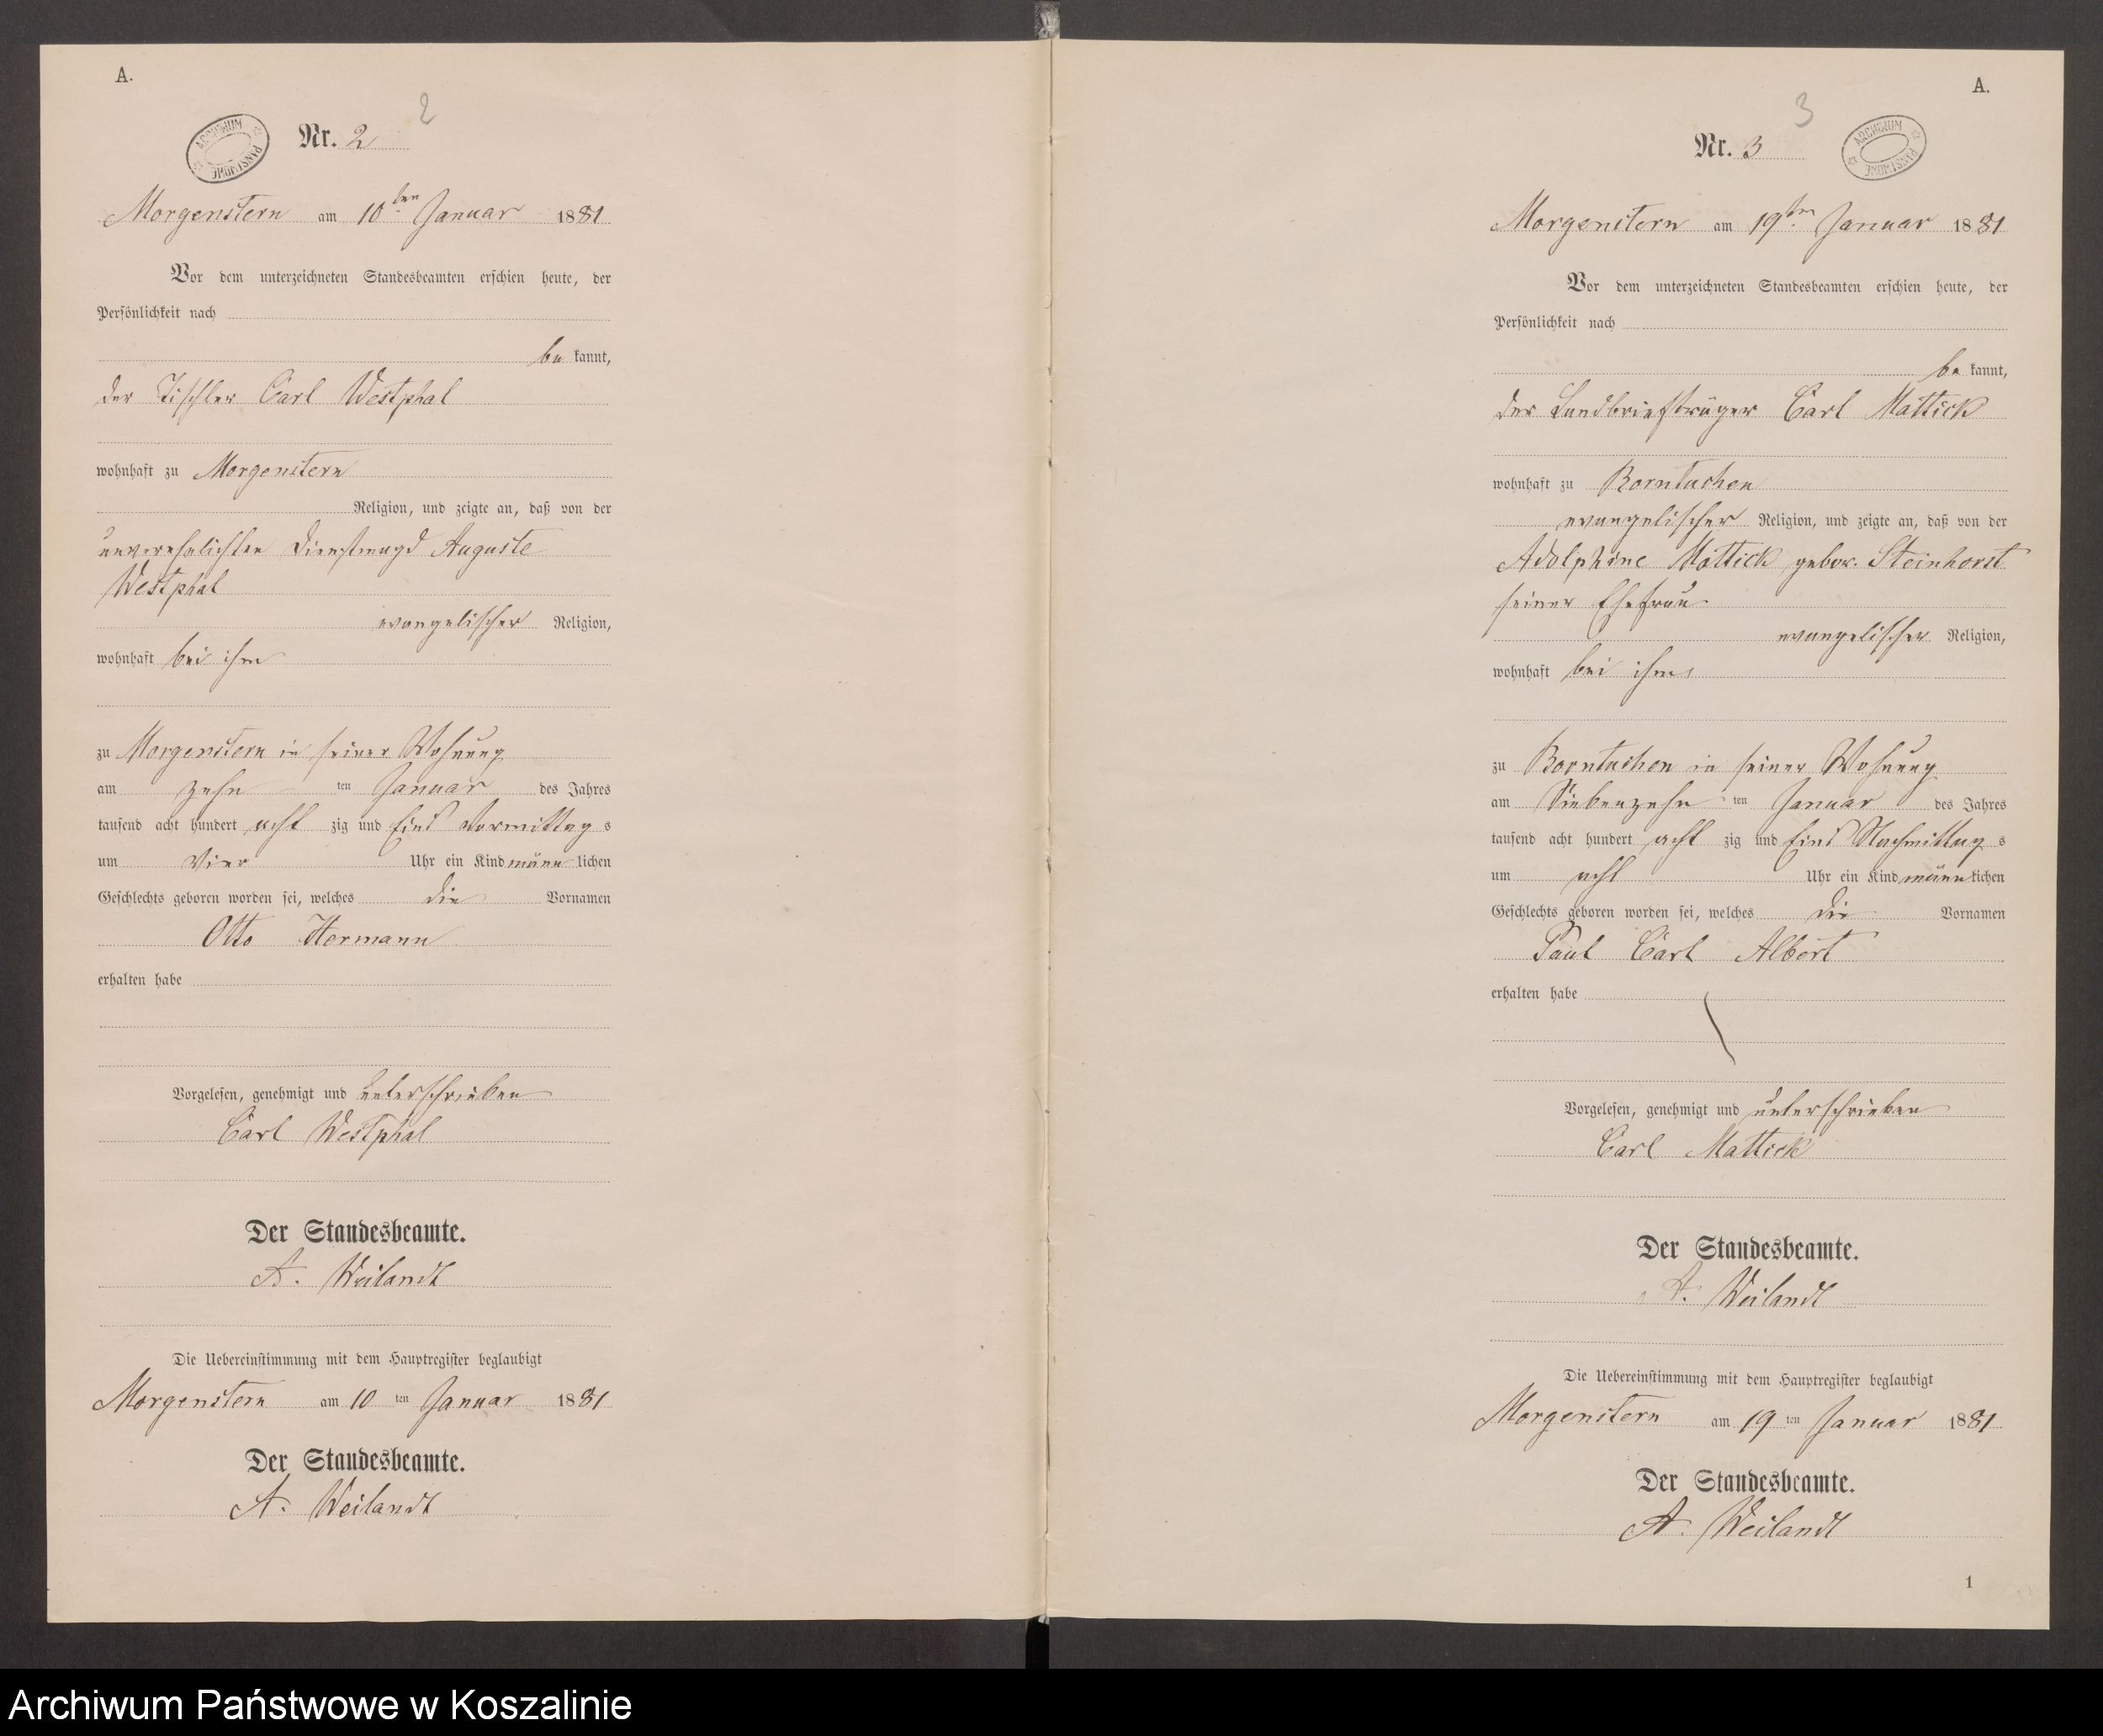 A.
2
ARCHIWUM PAŃSTWOWE
Nr. 2
Morgenstern am 10ten Januar 1881
Vor dem unterzeichneten Standesbeamten erschien heute, der
Persönlichkeit nach
be kannt,
der Tischler Carl Westphal
wohnhaft zu Morgenstern
Religion, und zeigte an, daß von der
unverehelichten Dienstmagd Auguste
Westphal
evangelischer Religion,
wohnhaft bei ihm
zu Morgenstern in seiner Wohnung
am zehn ten Januar des Jahres
tausend acht hundert acht zig und Eins Vormittag s
um Vier Uhr ein Kind männ lichen
Geschlechts geboren worden sei, welches die Vornamen
Otto Hermann
erhalten habe
Vorgelesen, genehmigt und unterschrieben
Carl Westphal
Der Standesbeamte.
A. Weilandt
Die Uebereinstimmung mit dem Hauptregister beglaubigt
Morgenstern am 10 ten Januar 1881
Der Standesbeamte.
A. Weilandt
A.
3
Nr. 3
ARCHIWUM PAŃSTWOWE
Morgenstern am 19ten Januar 1881
Vor dem unterzeichneten Standesbeamten erschien heute, der
Persönlichkeit nach
be kannt,
der Landbriefträger Carl Mattick
wohnhaft zu Borntuchen
evangelischer Religion, und zeigte an, daß von der
Adolphine Mattick gebor. Steinhorst
seiner Ehefrau
evangelischer Religion,
wohnhaft bei ihm
zu Borntuchen in seiner Wohnung
am Siebenzehn ten Januar des Jahres
tausend acht hundert acht zig und Eins Nachmittag s
um acht Uhr ein Kind männ lichen
Geschlechts geboren worden sei, welches die Vornamen
Paul Carl Albert
erhalten habe
Vorgelesen, genehmigt und unterschrieben
Carl Mattick
Der Standesbeamte.
A. Weilandt
Die Uebereinstimmung mit dem Hauptregister beglaubigt
Morgenstern am 19 ten Januar 1881
Der Standesbeamte.
A. Weilandt
1
Archiwum Państwowe w Koszalinie